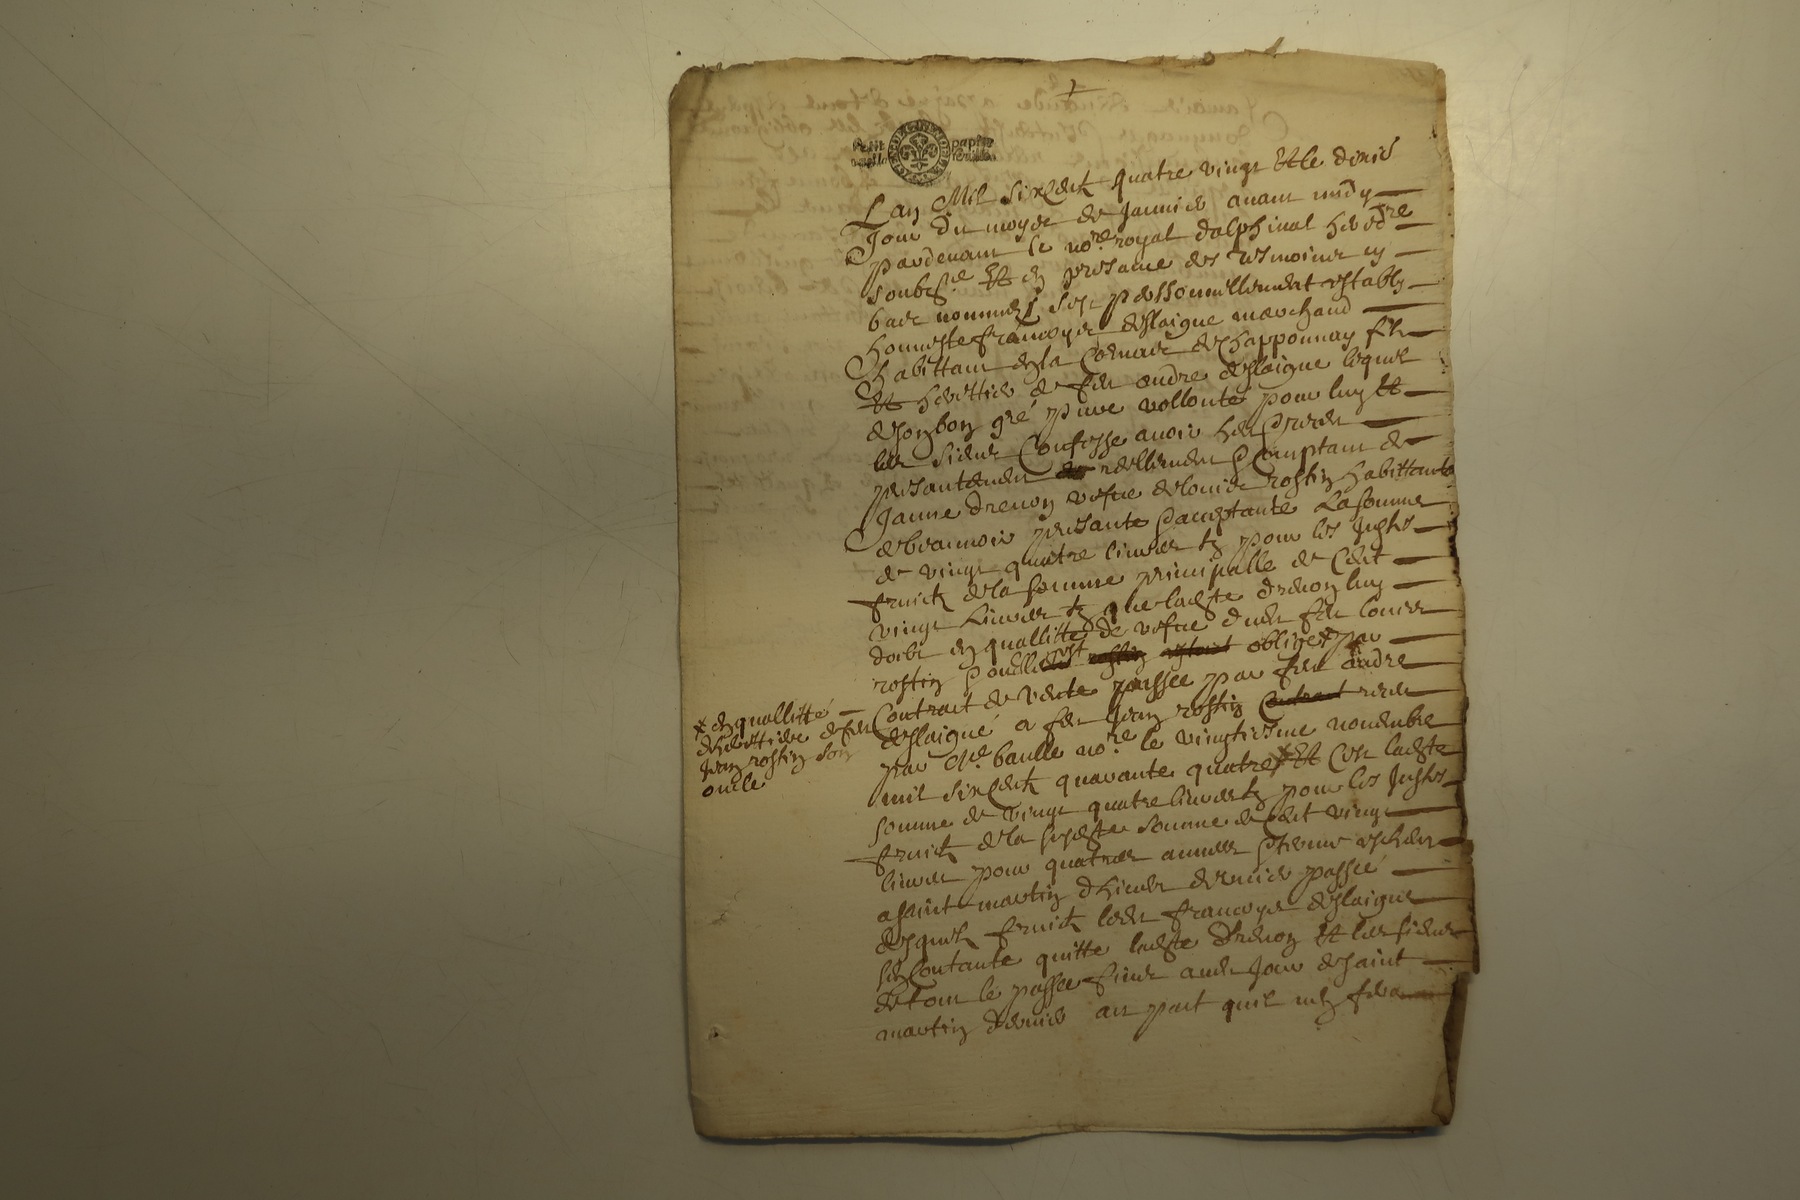 Petit papier
Lan Mil six Cent quatre vingt Et le dixie
Jour du moys de Janvier avant midy
pardevant le no.re royal dalphinal hered.re
soubs.né Et en presance des tesmoins cy
bas nommes sest personnellement estably
honneste francoys deslaigue marchand
habittant en la Comune de Chapponnay fils
Et herittier de feu andre deslaigue lequel
de son bon gré pure vollonté pour luy Et
les siens Confesse avoir heu & receu
presantement reellement & Comptant de
Janne drevon vefve de louis rostin habittante
de beauvoir presante & acceptante La somme
de vingt quatre livres tz pour les Justes
fruictz de la somme principalle de Cent
vingt Livres tz que ladste drevon luy
doibt en quallitté de vefve dudt feu louis
rostin obligé par
Contract de vente passée par feu andre
deslaigue a feu Jean rostin receu
par Me baulle no.re le vingtiesme novembre
mil six Centz quarante quatre * Et Cest ladste
somme de vingt quatre livres tz pour les Justes
fruictz de la susdste somme de Cent vingt
livres pour quatres annees & termes escheu
a saint martin dhiver dernier passée
desquelz fruictz ledt francoys deslaigue
se Contante quitte ladste drevon Et les siens
de tout le passee finit audt Jour de saint
martin dernier au pact quil nen fera
* en quallitté
dherittier de feu
Jean rostin son
oncle